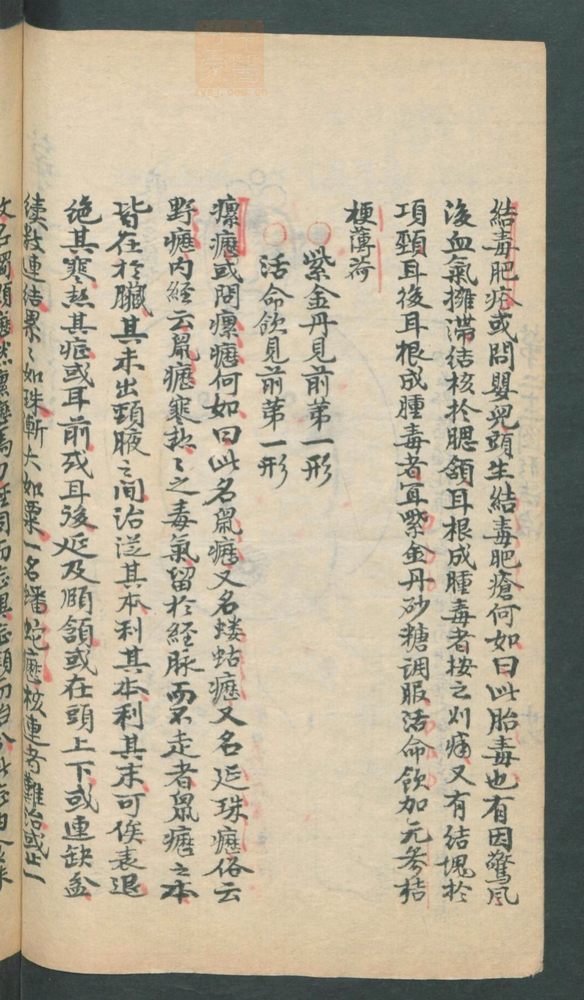 結毒肥疮或問嬰児頭生結毒肥瘡何如曰此胎毒也有因驚風
後血氣擁滞结核於腮頷耳根成腫毒者按之刈痛又有结塊於
項頸耳後耳根成腫毒者宜紫金丹砂糖调服活命飲加元参桔
梗薄荷
紫金丹見前苐一形
活命飲見前苐一形
瘰癧或問瘰癧何如曰此名鼠癧又名蝼蛄癧又名延珠癧俗云
野癧内经云鼠癧寒热之毒氣留於经脉而不走者鼠癧之本
皆在於臟其末出頸腋之间治従其本利其本利其末可俟表退
绝其寒热其疮或耳前或耳後延及頤頷或在頭上下或連缺盆
续数連结累々如珠漸大如栗一名蟠蛇癧核連者難治或止一